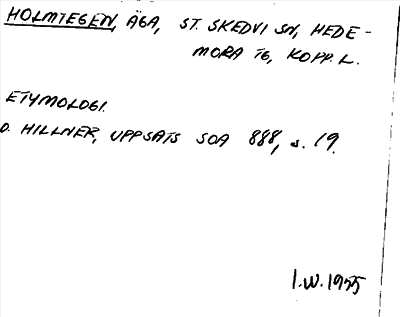 HOLMTEGEN, ÄGA, ST. SKEDVI SN, HEDE-
MORA TG, KOPP. L.
ETYMOLOGI.
O. HILLNER, UPPSATS SOA 888, s. 19.
I.W. 1955